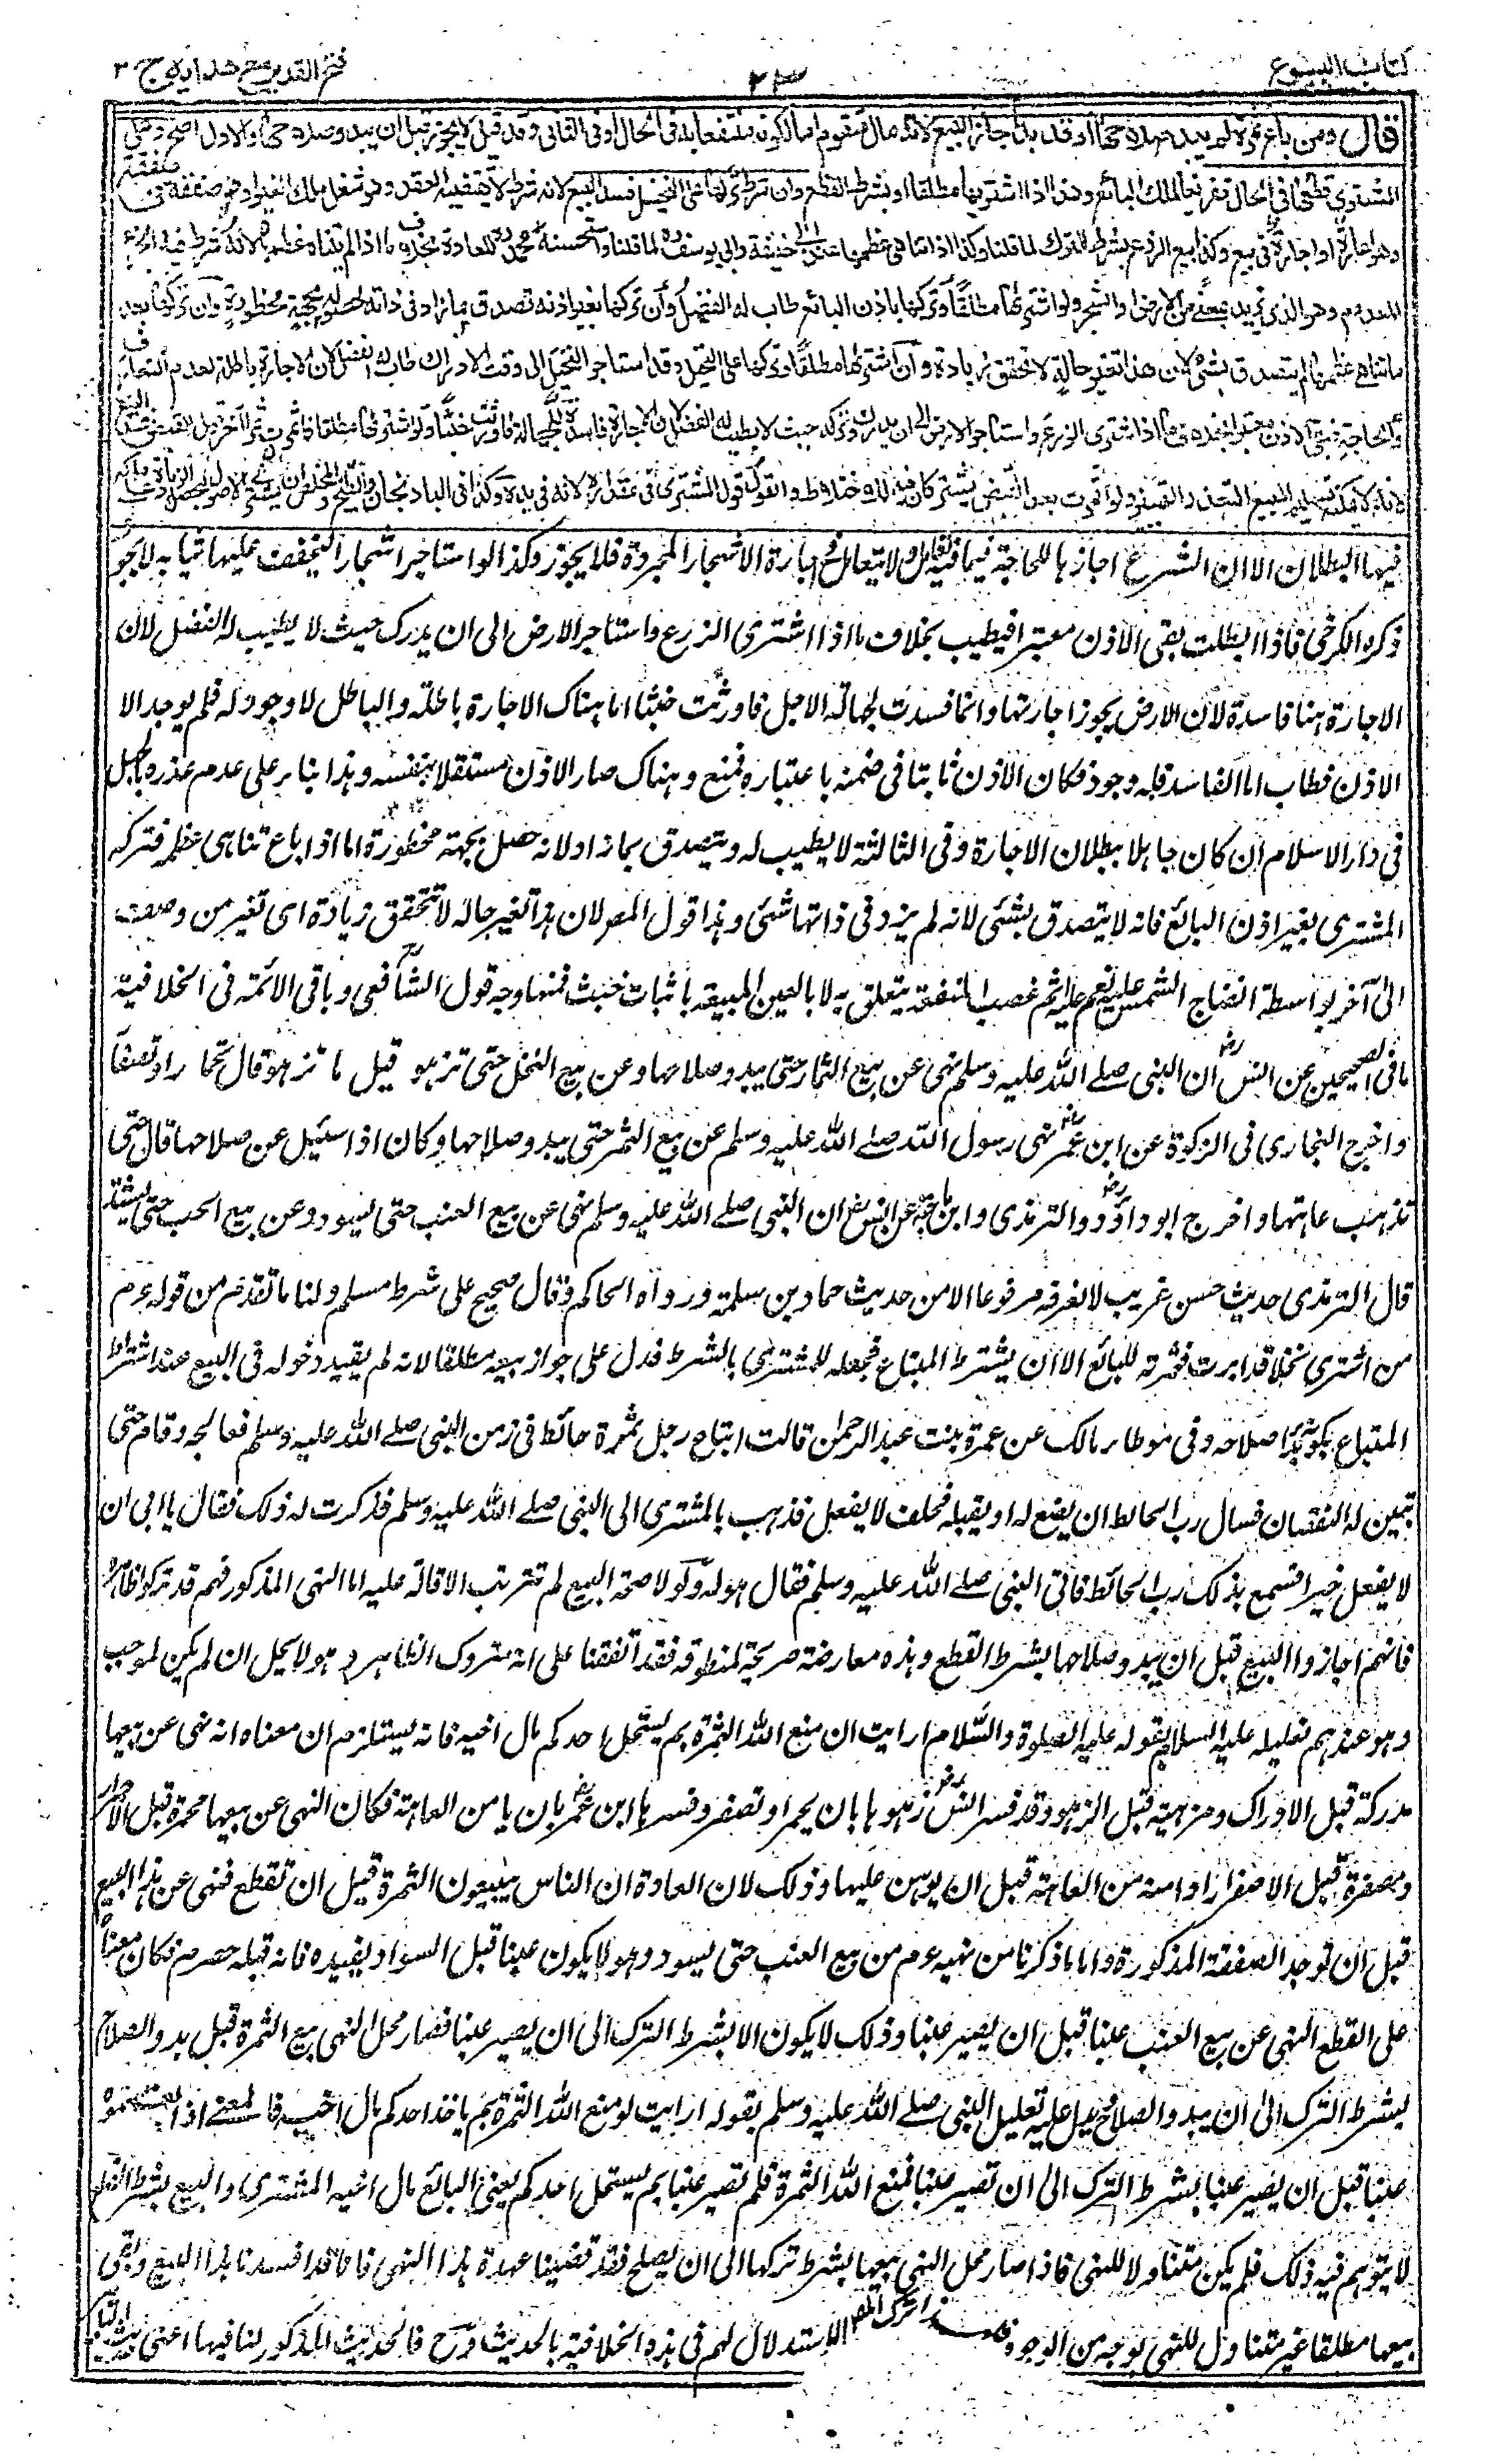 كتاب البيوع
٢٣
فتح القدير مع هدايه ج ٣
قال ومن باع ثمرة لم يبد صلاحها او قد بدا جاز البيع لانه مال متقوم اما لكونه منتفعا به فى الحال او فى الثانى وقد قيل لا يجوز قبل ان يبدو صلاحها والاول اصح وعلى
المشترى قطعها فى الحال تفريغا لملك البائع وهذا اذا اشتراها مطلقا او بشرط القطع وان شرط تركها على النخيل فسد البيع لانه شرط لا يقتضيه العقد وهو شغل ملك الغير او هو صفقة فى صفقة
وهو اعارة او اجارة فى بيع وكذا بيع الزرع بشرط الترك لما قلنا وكذا اذا تناهى عظمها عند ابى حنيفة وابى يوسف ره لما قلنا واستحسنه محمد ره للعادة بخلاف ما اذا لم يتناه عظمها لانه شرط فيه الجزء
المعدوم وهو الذى يزيد بمعنى من الارض والشجر ولو اشتراها مطلقا وتركها باذن البائع طاب له الفضل وان تركها بغير اذنه تصدق بما زاد فى ذاته لحصوله بجهة محظورة وان تركها بعد
ما تناهى عظمها لم يتصدق بشئ لان هذا تغير حالة لا تحقق زيادة وان اشتراها مطلقا وتركها على النخيل وقد استاجر النخيل الى وقت الادراك طاب له الفضل لان الاجارة باطلة لعدم التعارف
والحاجة فبقى الاذن معتبرا بخلاف ما اذا اشترى الزرع واستاجر الارض الى ان يدرك وتركه حيث لا يطيب له الفضل لان الاجارة فاسدة للجهالة فاورثت خبثا ولو اشتراها مطلقا فاثمرت ثمرا آخر قبل القبض فسد البيع
لانه لا يمكنه تسليم المبيع لتعذر التمييز ولو اثمرت بعد القبض يشتركان فيه للاختلاط والقول قول المشترى فى مقداره لانه فى يده وكذا فى الباذنجان والبطيخ والمخلص ان يشترى الاصول لتحصل الزيادة على ملكه
فيها البطلان الا ان الشرع اجازها للحاجة فيما فيه تعامل ولا تعامل فى اجارة الاشجار المجردة فلا يجوز وكذا لو استاجر اشجارا ليجفف عليها ثيابه لا يجوز
ذكره الكرخى فاذا بطلت بقى الاذن معتبرا فيطيب بخلاف ما اذا اشترى الزرع واستاجر الارض الى ان يدرك حيث لا يطيب له الفضل لان
الاجارة هنا فاسدة لان الارض يجوز اجارتها وانما فسدت لجهالة الاجل فاورثت خبثا اما هناك الاجارة باطلة والباطل لا وجود له فلم يوجد الا
الاذن فطاب اما الفاسد فله وجود فكان الاذن ثابتا فى ضمنه باعتباره فمنع وهناك صار الاذن مستقلا بنفسه وهذا بناء على عدم عذره بالجهل
فى دار الاسلام ان كان جاهلا ببطلان الاجارة وفى الثالثة لا يطيب له ويتصدق بما زاد لانه حصل بجهة محظورة اما اذا باع تناهى عظم فتركه
المشترى بغير اذن البائع فانه لا يتصدق بشئى لانه لم يزد فى ذاتها شئى وهذا قول المصر لان هذا تغير حالة لا تتحقق زيادة اى تغير من وصف
الى آخر بواسطة انضاج الشمس عليه نعم عليه اثم غصب المنفعة يتعلق به لا بالعين المبيعة باثبات خبث فمنها وجه قول الشافعى وباقى الائمة فى الخلافية
ما فى الصحيحين عن انس رض ان النبى صلى الله عليه وسلم نهى عن بيع الثمار حتى يبدو صلاحها وعن بيع النخل حتى تزهو قيل ما تزهو قال تحمار او تصفار
واخرج البخارى فى الزكوة عن ابن عمر نهى رسول الله صلى الله عليه وسلم عن بيع الثمر حتى يبدو صلاحها وكان اذا سئيل عن صلاحها قال حتى
تذهب عاهتها واخرج ابو داؤد والترمذى وابن ماجة عن انس رض ان النبى صلى الله عليه وسلم نهى عن بيع العنب حتى يسود وعن بيع الحب حتى يشتد
قال الترمذى حديث حسن غريب لا نعرفه مرفوعا الا من حديث حماد بن سلمة ورواه الحاكم وقال صحيح على شرط مسلم ولنا ما تقدم من قوله عم
من اشترى نخلا قد ابرت فثمرته للبائع الا ان يشترط المبتاع فجعله للمشترى بالشرط فدل على جواز بيعه مطلقا لانه لم يقيد دخوله فى البيع عند اشتراط
المبتاع بكونه بدا صلاحه وفى موطا مالك عن عمرة بنت عبد الرحمن قالت ابتاع رجل ثمرة حائط فى زمن النبى صلى الله عليه وسلم فعالجه وقام حتى
تبين له النقصان فسال رب الحائط ان يضع له او يقيله فحلف لا يفعل فذهب بالمشترى الى النبى صلى الله عليه وسلم فذكرت له ذلك فقال يا ابى ان
لا يفعل خيرا فسمع بذلك رب الحائط فاتى النبى صلى الله عليه وسلم فقال هو له ولولا صحة البيع لم تترتب الاقالة عليه اما النهى المذكور فهم قد تركوا ظاهره
فانهم اجازوا البيع قبل ان يبدو صلاحها بشرط القطع وهذه معارضة صريحة لمنطوقه فقد اتفقنا على انه متروك الظاهر وهو لا يحل ان لم يكن لموجب
وهو عندهم تعليله عليه السلام بقوله عليه الصلوة والسلام ارايت ان منع الله الثمرة بم يستحل احدكم مال اخيه فانه يستلزم ان معناه انه نهى عن بيعها
مدركة قبل الادراك ومزهية قبل الزهو وقد فسر انس رض زهوها بان يحمر او تصفر وفسرها ابن عمر بان يامن العاهة فكان النهى عن بيعها محمرة قبل الاحمرار
ومصفرة قبل الاصفرار او امنه من العاهة قبل ان يومن عليها وذلك لان العادة ان الناس يبيعون الثمرة قبل ان تقطع فنهى عن هذا البيع
قبل ان توجد الصفقة المذكورة واما ما ذكرنا من نهيه عم من بيع العنب حتى يسود وهو لا يكون عينا قبل السواد يفيده فانه قبله حصرم فكان معناه
على القطع النهى عن بيع العنب عنبا قبل ان يصير عنبا وذلك لا يكون الا بشرط الترك الى ان يصير عنبا فصار محل النهى بيع الثمرة قبل بدو الصلاح
بشرط الترك الى ان يبدو الصلاح يدل عليه تعليل النبى صلى الله عليه وسلم بقوله ارايت لو منع الله الثمرة بم ياخذ احدكم مال اخيه فالمعنى اذا بعتموه
عنبا قبل ان يصير عنبا بشرط الترك الى ان تصير عنبا فمنع الله الثمرة فلم تصير عنبا بم يستحل احدكم يعنى البائع مال اخيه المشترى والبيع بشرط القطع
لا يتوهم فيه ذلك فلم يكن متناولا للنهى فاذا صار محل النهى بيعها بشرط تركها الى ان يصلح فقد قضينا عهدة هذا النهى فانا قد افسدنا هذا البيع وبقى
بيعها مطلقا غير متناول للنهى بوجه من الوجوه ترك المصر الاستدلال لهم فى هذه الخلافية بالحديث وح فالحديث المذكور لنا فيها اعنى حديث